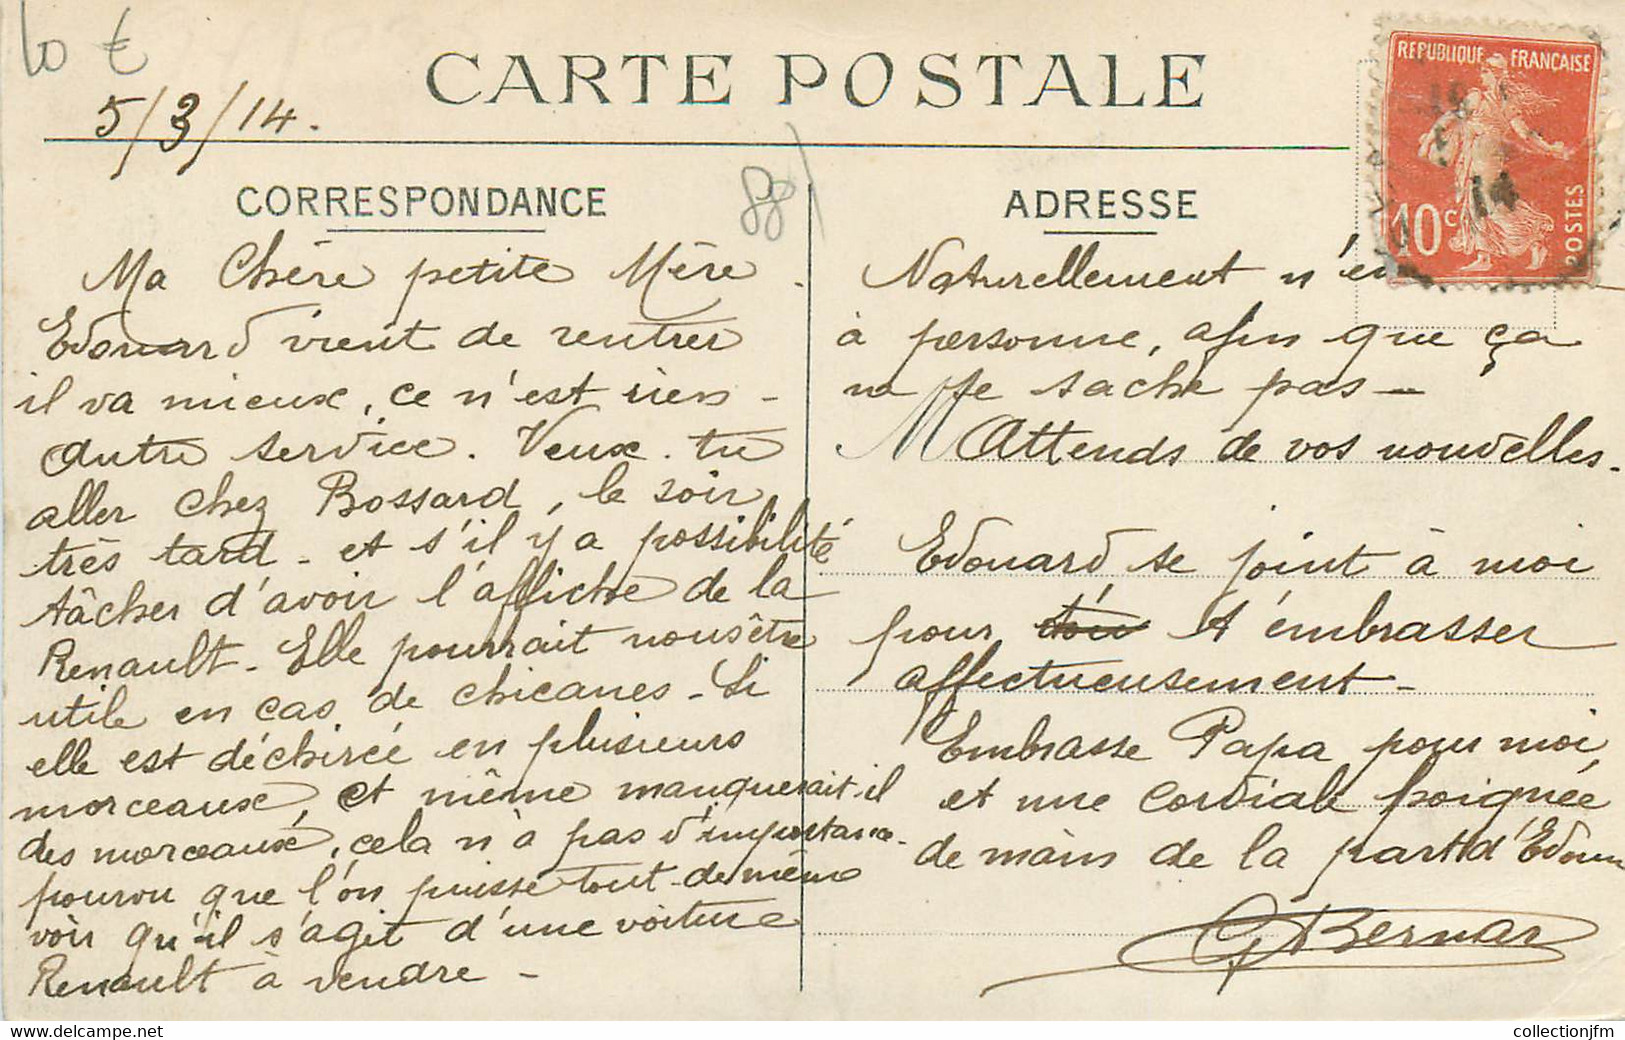 10 €
CARTE POSTALE
5/3/14.
RÉPUBLIQUE FRANÇAISE
10c
POSTES
14
88
CORRESPONDANCE
Ma Chère petite Mère.
Edouard vient de rentrer
il va mieux, ce n'est rien -
Autre service. Veux-tu
aller chez Bossard, le soir
très tard - et s'il y a possibilité
tâcher d'avoir l'affiche de la
Renault - Elle pourrait nous être
utile en cas de chicanes - Si
elle est déchirée en plusieurs
morceaux, et même manquerait-il
des morceaux, cela n'a pas d'importance -
pourvu que l'on puisse tout-de-même
voir qu'il s'agit d'une voiture
Renault à vendre -
ADRESSE
Naturellement n'en
à personne, afin que ça
ne se sache pas -
Attends de vos nouvelles.
Edouard se joint à moi
pour t'embrasser
affectueusement -
Embrasse Papa pour moi,
et une cordiale poignée
de main de la part d'Edouard
G Bernard
www.delcampe.net
collectionjfm